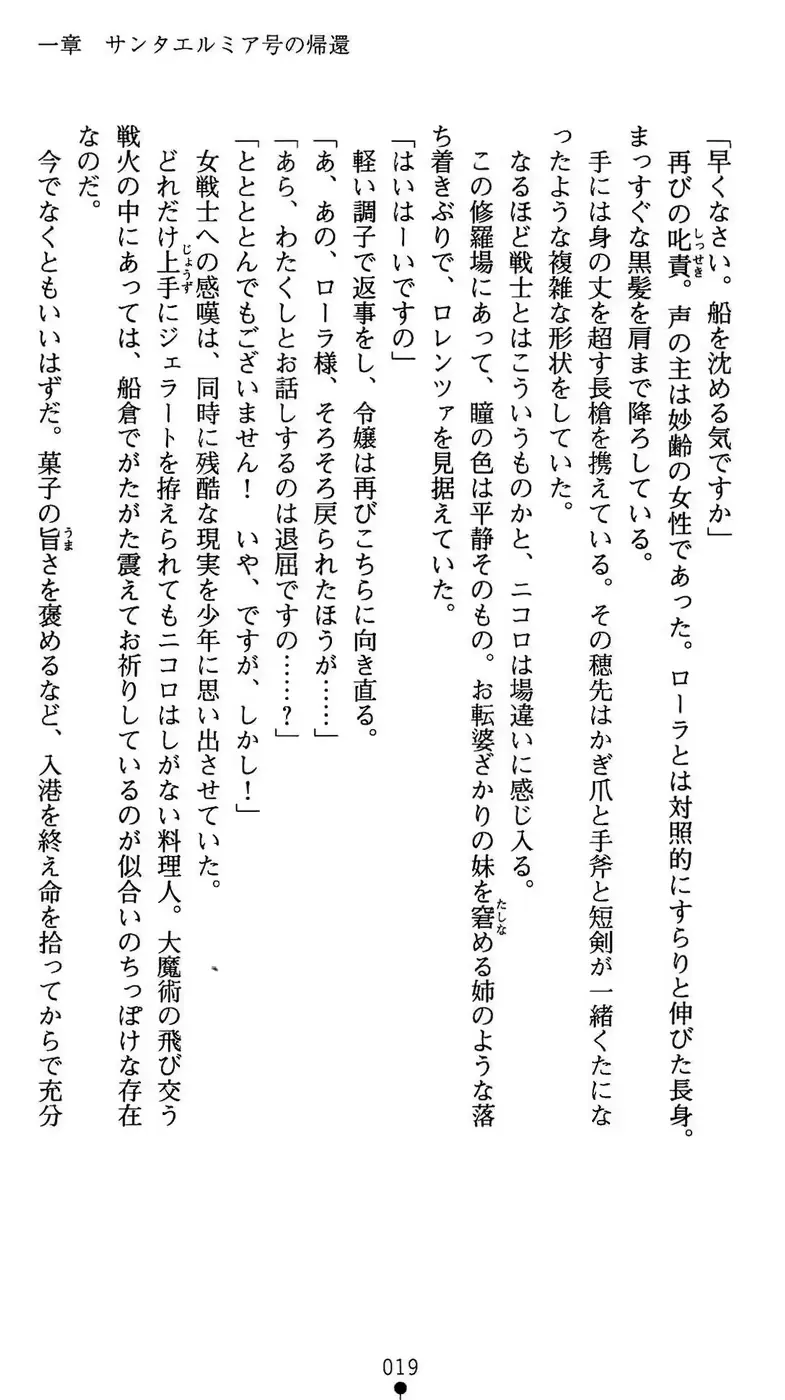 一章　サンタエルミア号の帰還
「早くなさい。船を沈める気ですか」
再びの叱責。声の主は妙齢の女性であった。ローラとは対照的にすらりと伸びた長身。
まっすぐな黒髪を肩まで降ろしている。
手には身の丈を超す長槍を携えている。その穂先はかぎ爪と手斧と短剣が一緒くたにな
ったような複雑な形状をしていた。
なるほど戦士とはこういうものかと、ニコロは場違いに感じ入る。
この修羅場にあって、瞳の色は平静そのもの。お転婆ざかりの妹を窘める姉のような落
ち着きぶりで、ロレンツァを見据えていた。
「はいはーいですの」
軽い調子で返事をし、令嬢は再びこちらに向き直る。
「あ、あの、ローラ様、そろそろ戻られたほうが……」
「あら、わたくしとお話しするのは退屈ですの……？」
「とととととんでもございません！　いや、ですが、しかし！」
女戦士への感嘆は、同時に残酷な現実を少年に思い出させていた。
どれだけ上手にジェラートを拵えられてもニコロはしがない料理人。大魔術の飛び交う
戦火の中にあっては、船倉でがたがた震えてお祈りしているのが似合いのちっぽけな存在
なのだ。
今でなくともいいはずだ。菓子の旨さを褒めるなど、入港を終え命を拾ってからで充分
しっせき
たしな
じょうず
うま
019